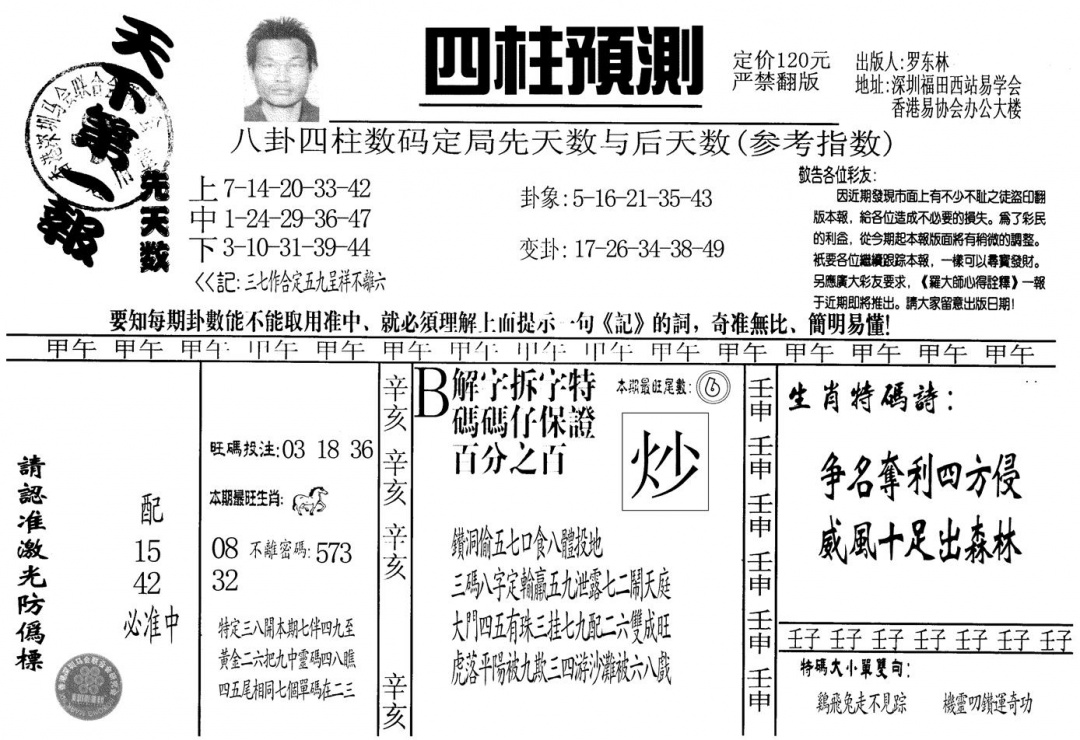 天下第一報
四柱預測
定价120元
严禁翻版
出版人:罗东林
地址:深圳福田西站易学会
香港易协会办公大楼
八卦四柱数码定局先天数与后天数(参考指数)
先天数
上7-14-20-33-42
中1-24-29-36-47
下3-10-31-39-44
<<記:三七作合定五九呈祥不離六
卦象:5-16-21-35-43
变卦:17-26-34-38-49
敬告各位彩友:
因近期發現市面上有不少不耻之徒盜印翻
版本報，給各位造成不必要的損失。爲了彩民
的利益，從今期起本報版面將有稍微的調整。
衹要各位繼續跟踪本報，一樣可以尋寶發財。
另應廣大彩友要求，《羅大師心得詮釋》一報
于近期即將推出。請大家留意出版日期!
要知每期卦數能不能取用准中、就必須理解上面提示一句《記》的詞，奇准無比、簡明易懂!
甲午 甲午 甲午 甲午 甲午 甲午 甲午 甲午 甲午 甲午 甲午 甲午 甲午 甲午 甲午
請認准激光防僞標
配
15
42
必准中
旺碼投注:03 18 36
本期最旺生肖:
08 不離密碼:573
32
特定三八開本期七伴四九至
黃金二六把九中靈碼四八瞧
四五尾相同七個單碼在二三
辛亥
辛亥
辛亥
辛亥
B解字拆字特
碼碼仔保證
百分之百
本期最旺尾數:6
炒
鑽洞偷五七口食八體投地
三碼八字定輸贏五九泄露七二鬧天庭
大門四五有珠三挂七九配二六雙成旺
虎落平陽被九欺三四游沙灘被六八戲
壬申
壬申
壬申
壬申
壬申
壬申
生肖特碼詩:
争名奪利四方侵
威風十足出森林
壬子 壬子 壬子 壬子 壬子 壬子 壬子
特碼大小單雙句:
鷄飛兔走不見踪 機靈叨鑽運奇功